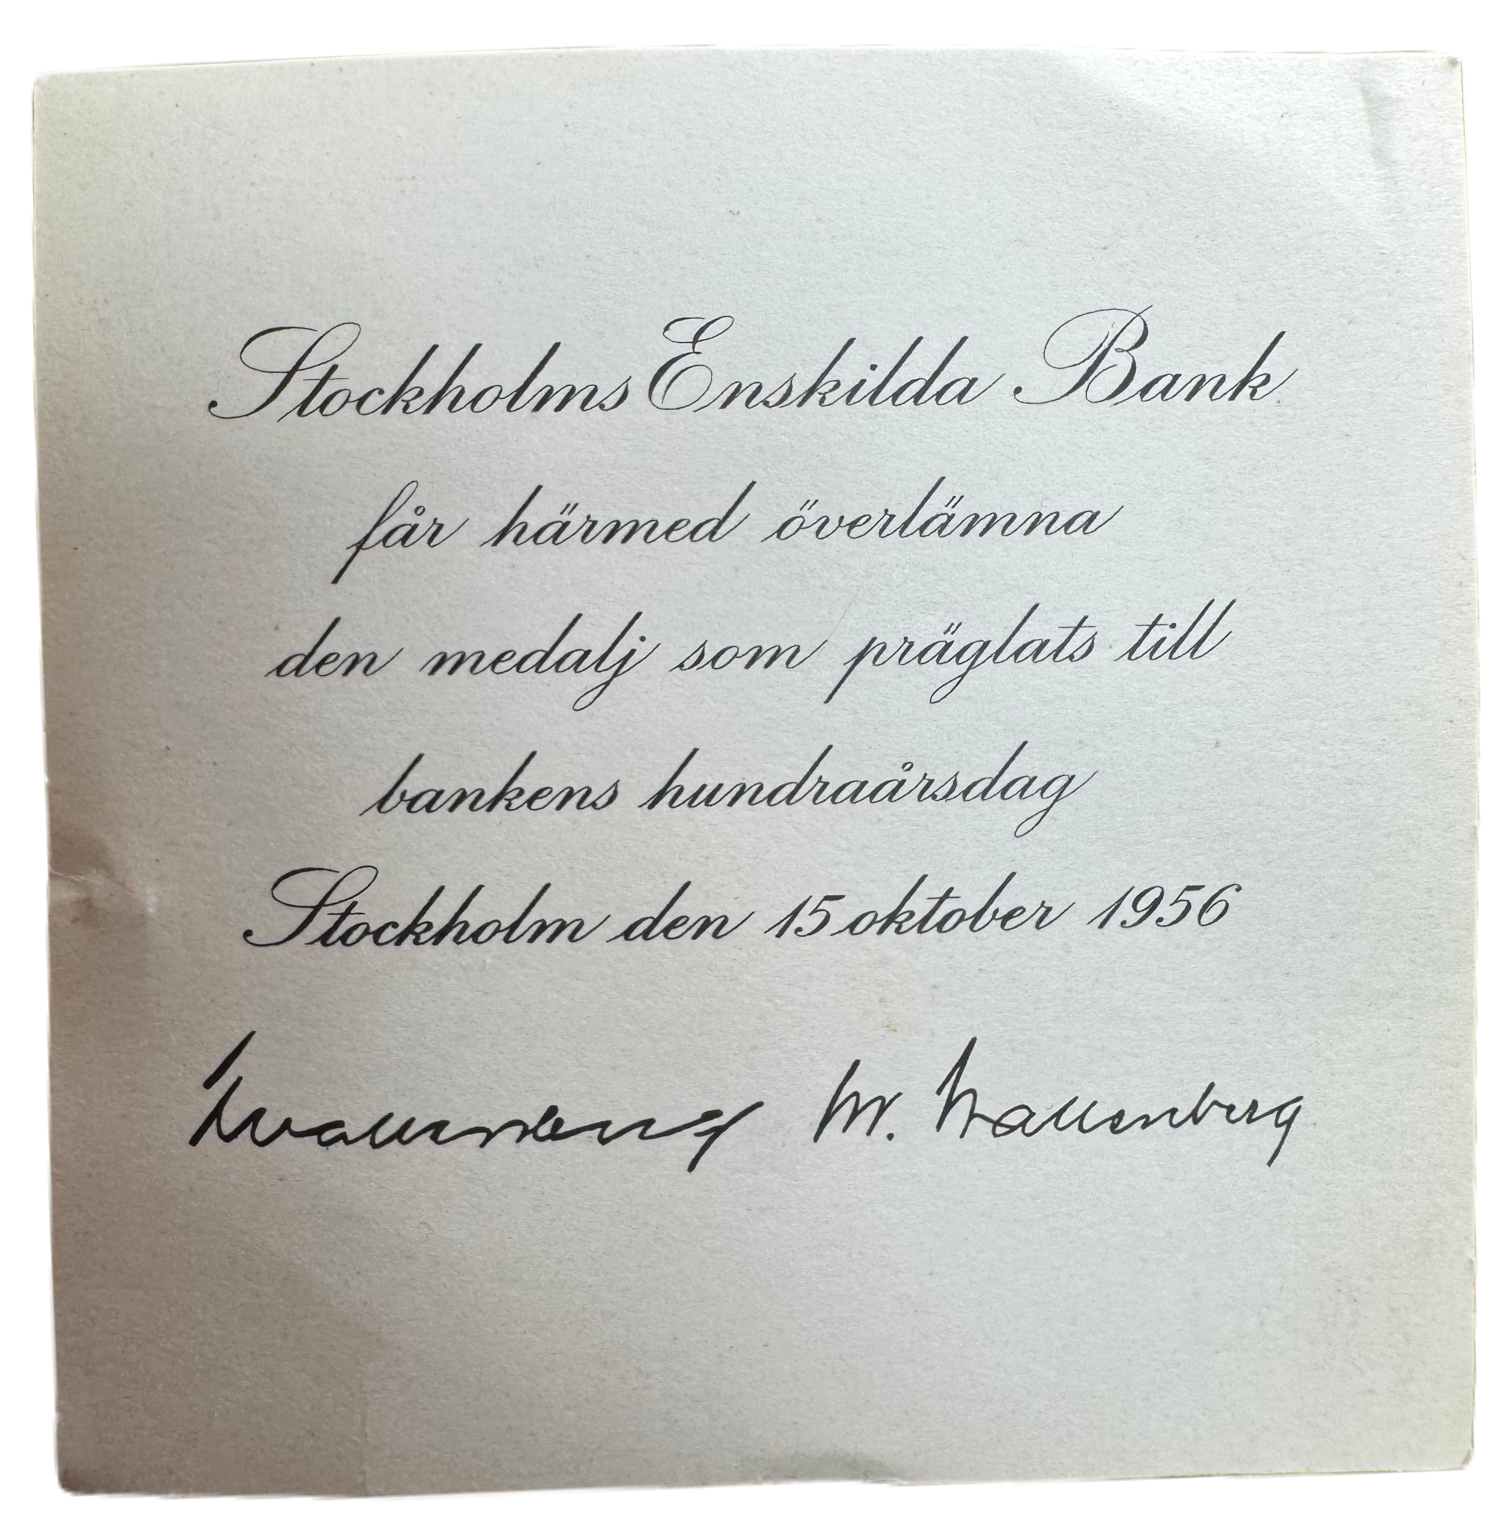 Stockholms Enskilda Bank
får härmed överlämna
den medalj som präglats till
bankens hundraårsdag
Stockholm den 15 oktober 1956
Wallenberg M. Wallenberg